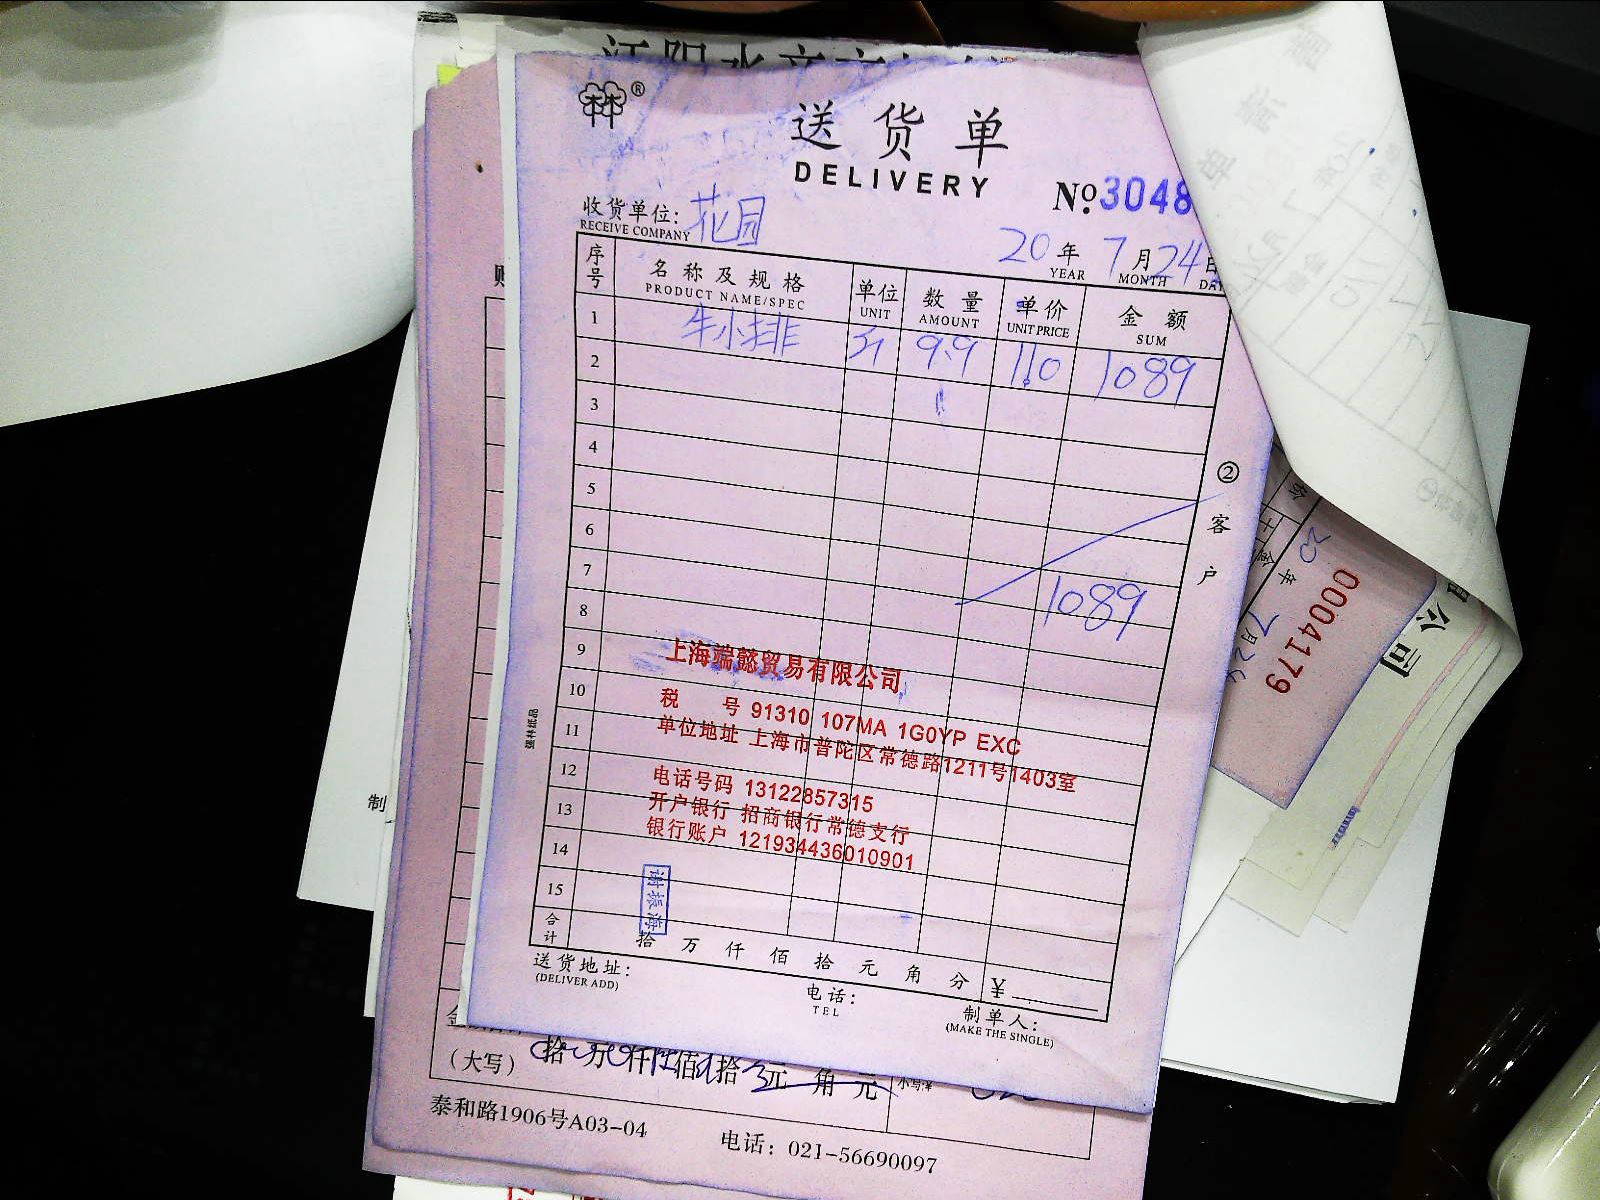 林®
送货单
DELIVERY
№ 3048
收货单位: 花园
RECEIVE COMPANY
20 年 7 月 24 日
YEAR MONTH DAY
序号 名称及规格 单位 数量 单价 金额
PRODUCT NAME/SPEC UNIT AMOUNT UNIT PRICE SUM
1 牛小排 斤 9.9 110 1089
2
3
4
5
6
7
8 1089
9
10
11
12
13
14
15
② 客户
上海端懿贸易有限公司
税 号 91310 107MA 1G0YP EXC
单位地址 上海市普陀区常德路1211号1403室
电话号码 13122857315
开户银行 招商银行常德支行
银行账户 121934436010901
谢振海
合计 拾 万 仟 佰 拾 元 角 分 ¥
送货地址:
(DELIVER ADD)
电话:
TEL
制单人:
(MAKE THE SINGLE)
强林纸品
(大写) 拾 万 仟 佰 拾 元 角 元
小写:¥
泰和路1906号A03-04
电话: 021-56690097
制
0004179
20 年 7 月 24
公司